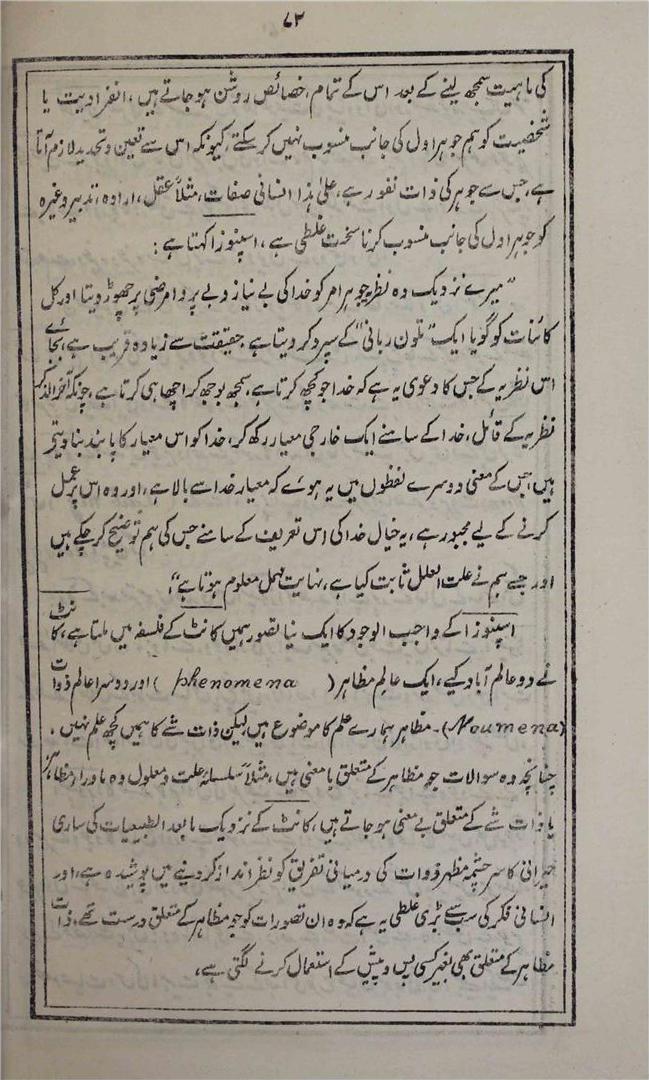 ۷۲
کی ماہیت سمجھ لینے کے بعد اس کے تمام خصائص روشن ہو جاتے ہیں، انفرادیت یا
شخصیت کو ہم جوہر اول کی جانب منسوب نہیں کر سکتے، کیونکہ اس سے تعین و تحدید لازم آتا
ہے، جس سے جوہر کی ذات نفور ہے، علیٰ ہذا انسانی صفات، مثلاً عقل، ارادہ، تدبیر وغیرہ
کو جوہر اول کی جانب منسوب کرنا سخت غلطی ہے، اسپنوزا کہتا ہے:
"میرے نزدیک وہ نظریہ جو ہر امر کو خدا کی بے نیاز و بے پروا مرضی پر چھوڑ دیتا اور کل
کائنات کو گویا ایک "تلون ربانی" کے سپرد کر دیتا ہے حقیقت سے زیادہ قریب ہے، بجائے
اس نظریہ کے جس کا دعویٰ یہ ہے کہ خدا جو کچھ کرتا ہے، سمجھ بوجھ کر اچھا ہی کرتا ہے، چونکہ آخر الذکر
نظریہ کے قائل، خدا کے سامنے ایک خارجی معیار رکھ کر، خدا کو اس معیار کا پابند بنا دیتے
ہیں، جس کے معنی دوسرے لفظوں میں یہ ہوئے کہ معیار خدا سے بالا ہے، اور وہ اس پر عمل
کرنے کے لیے مجبور ہے، یہ خیال خدا کی اس تعریف کے سامنے جس کی ہم توضیح کر چکے ہیں
اور جسے ہم نے علت العلل ثابت کیا ہے، نہایت مہمل معلوم ہوتا ہے"،
اسپنوزا کے واجب الوجود کا ایک نیا تصور ہمیں کانٹ کے فلسفہ میں ملتا ہے، کانٹ
نے دو عالم آباد کیے، ایک عالم مظاہر (phenomena) اور دوسرا عالم ذوات
(Noumena)۔ مظاہر ہمارے علم کا موضوع ہیں، لیکن ذات شے کا ہمیں کچھ علم نہیں،
چنانچہ وہ سوالات جو مظاہر کے متعلق با معنی ہیں، مثلاً سلسلۂ علت و معلول وہ ماوراء مظاہر
یا ذات شے کے متعلق بے معنی ہو جاتے ہیں، کانٹ کے نزدیک ما بعد الطبیعیات کی ساری
حیرانی کا سرچشمہ مظہر و ذات کی درمیانی تفریق کو نظر انداز کر دینے میں پوشیدہ ہے، اور
انسانی فکر کی سب سے بڑی غلطی یہ ہے کہ وہ ان تصورات کو جو مظاہر کے متعلق درست تھے، ذات
مظاہر کے متعلق بھی بغیر کسی پس و پیش کے استعمال کرنے لگتی ہے،